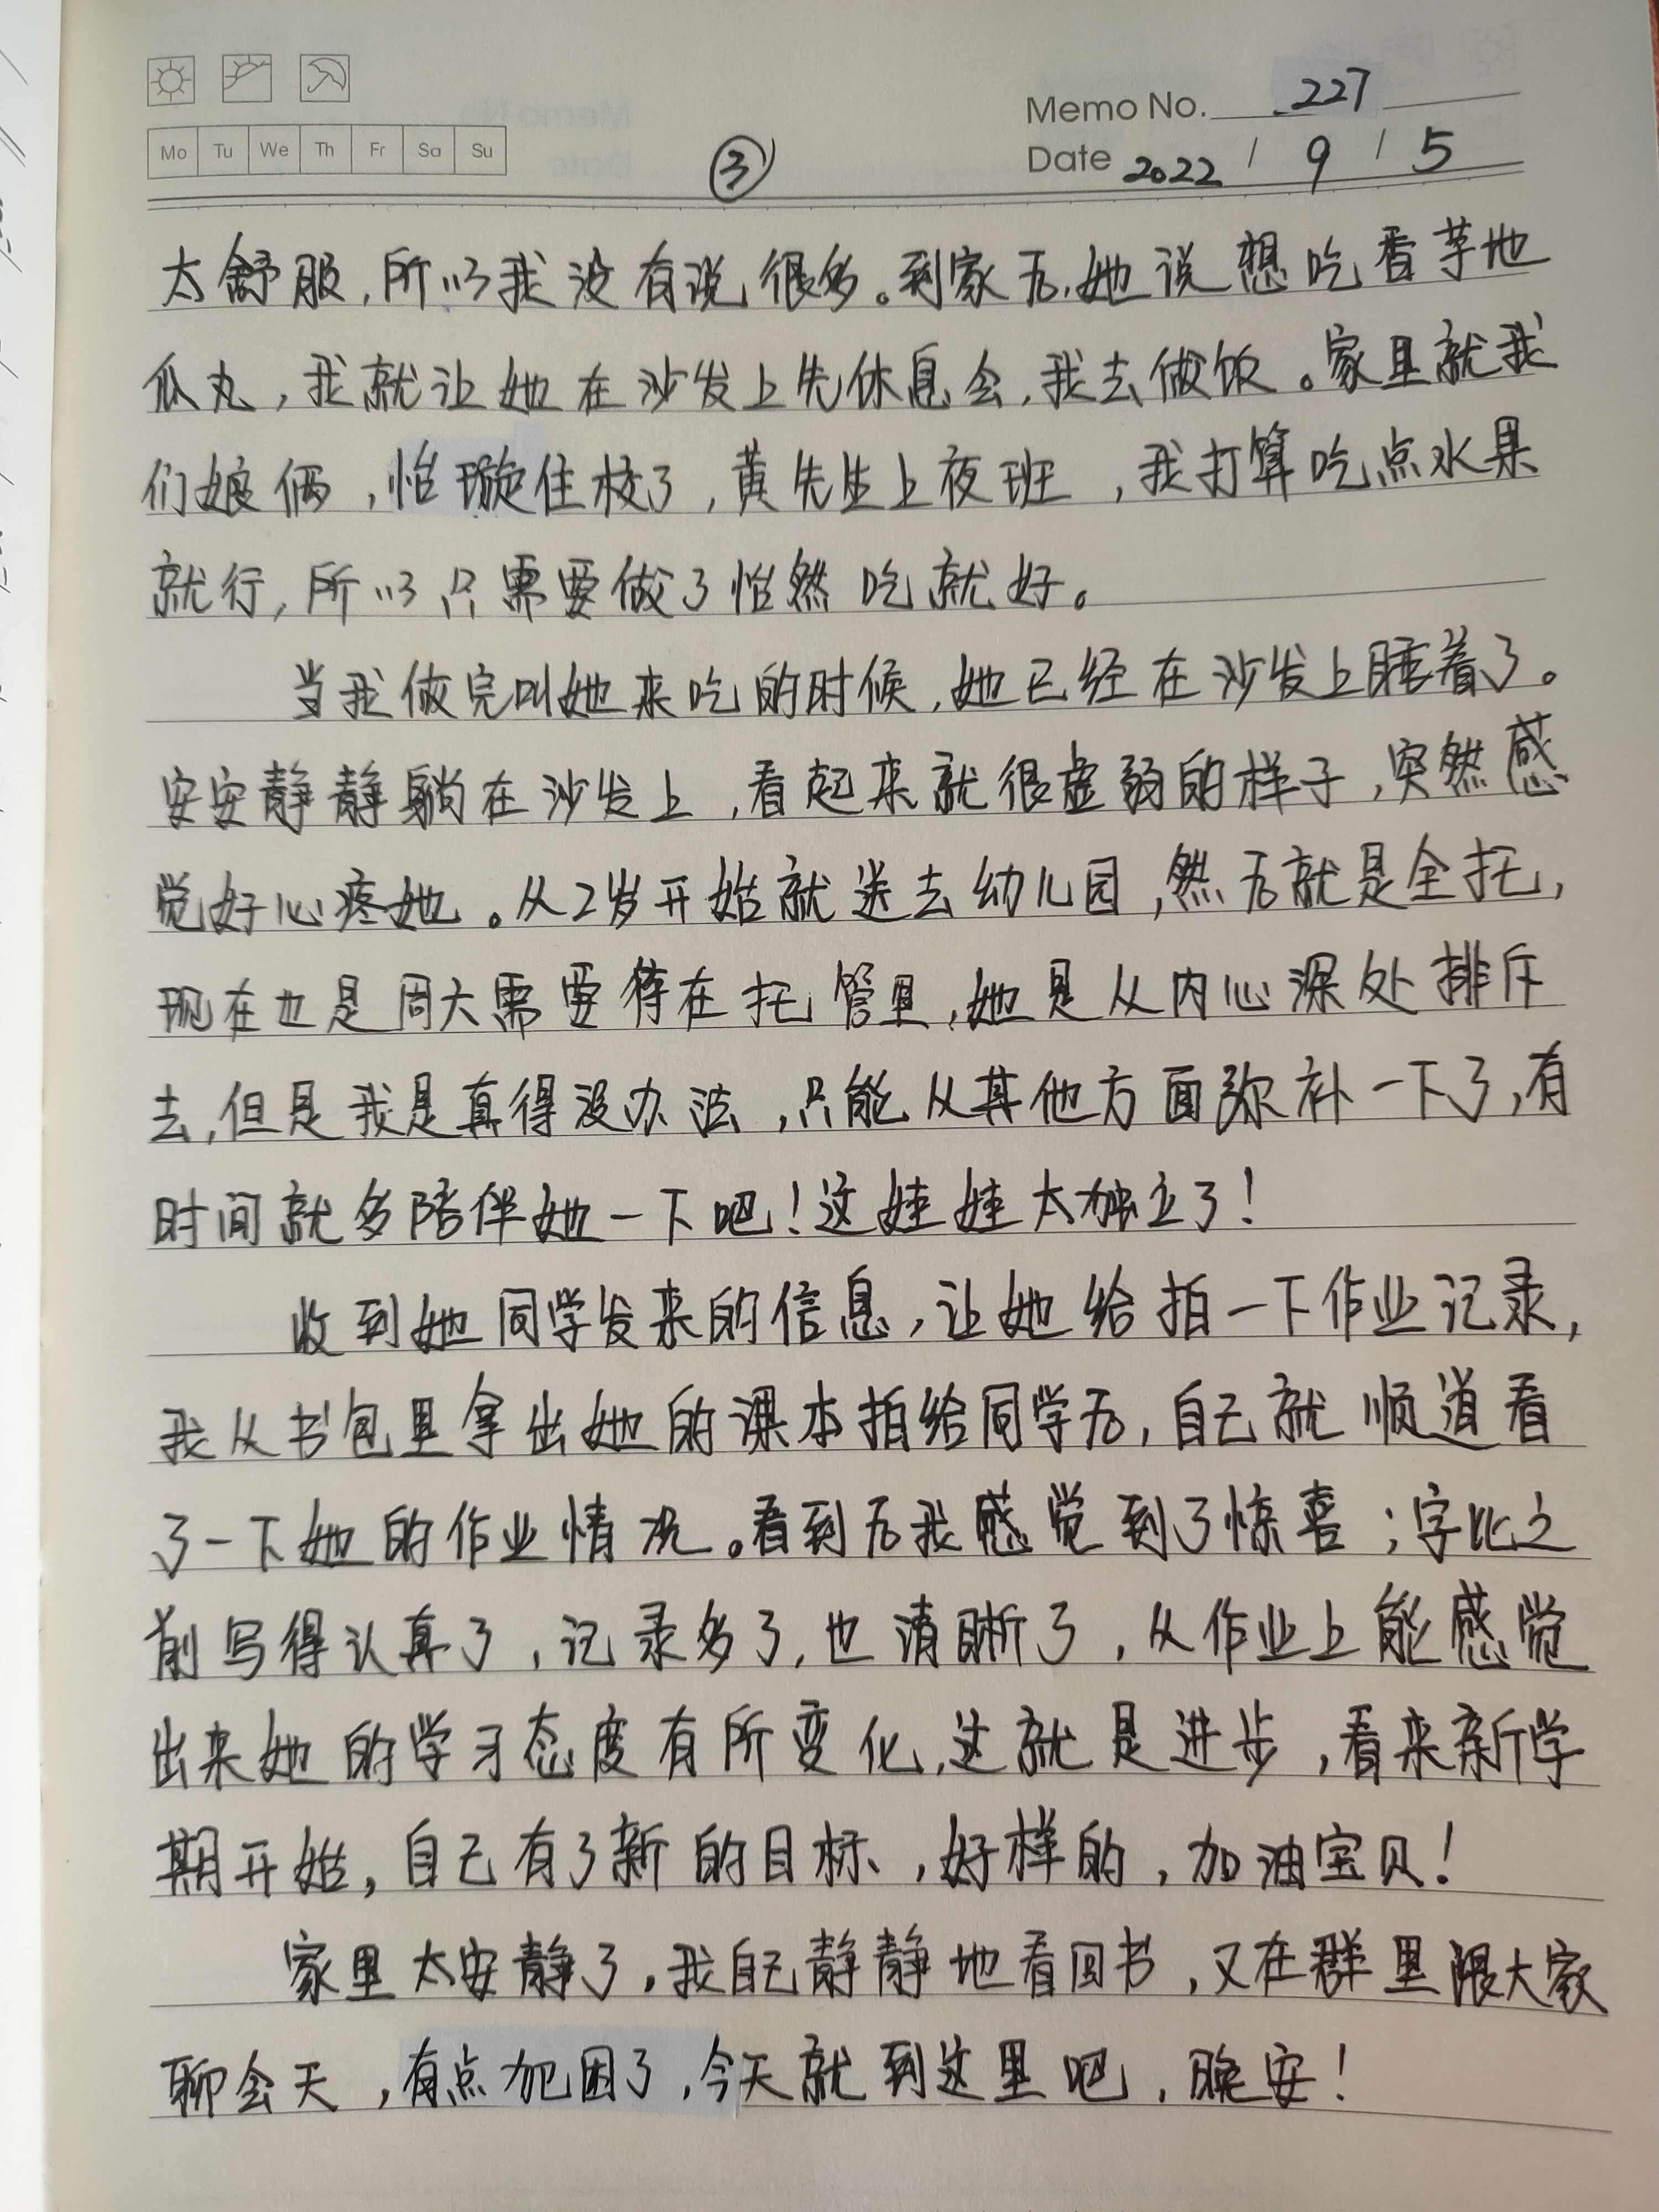 Memo No. 227
Mo Tu We Th Fr Sa Su
③
Date 2022 / 9 / 5
太舒服,所以我没有说很多。到家后,她说想吃香芋地
瓜丸,我就让她在沙发上先休息会,我去做饭。家里就我
们娘俩,怡璇住校了,黄先生上夜班,我打算吃点水果
就行,所以只需要做了怡然吃就好。
当我做完叫她来吃的时候,她已经在沙发上睡着了。
安安静静躺在沙发上,看起来就很虚弱的样子,突然感
觉好心疼她。从2岁开始就送去幼儿园,然后就是全托,
现在也是周六需要待在托管里,她是从内心深处排斥
去,但是我是真得没办法,只能从其他方面弥补一下了,有
时间就多陪伴她一下吧!这娃娃太独立了!
收到她同学发来的信息,让她给拍一下作业记录,
我从书包里拿出她的课本拍给同学后,自己就顺道看
了一下她的作业情况。看到后我感觉到了惊喜;字比之
前写得认真了,记录多了,也清晰了,从作业上能感觉
出来她的学习态度有所变化,这就是进步,看来新学
期开始,自己有了新的目标、,好样的,加油宝贝!
家里太安静了,我自己静静地看回书,又在群里跟大家
聊会天,有点犯困了,今天就到这里吧,晚安!